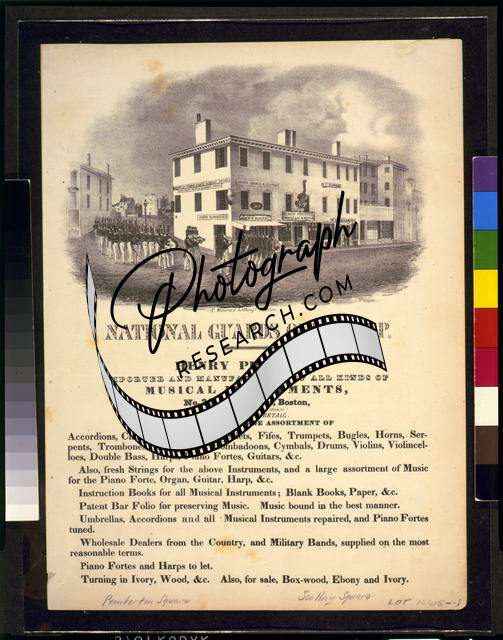 T. Moore's Lithog.
NATIONAL GUARDS
HENRY
MUSICAL
Boston,
RETAIL.
ASSORTMENT OF
Accordions, Fifes, Trumpets, Bugles, Horns, Ser-
pents, Cymbals, Drums, Violins, Violincel-
loes, Double Bass, Harps, Piano Fortes, Guitars, &c.
Also, fresh Strings for the above Instruments, and a large assortment of Music
for the Piano Forte, Organ, Guitar, Harp, &c.
Instruction Books for all Musical Instruments; Blank Books, Paper, &c.
Patent Bar Folio for preserving Music. Music bound in the best manner.
Umbrellas, Accordions and all Musical Instruments repaired, and Piano Fortes
tuned.
Wholesale Dealers from the Country, and Military Bands, supplied on the most
reasonable terms.
Piano Fortes and Harps to let.
Turning in Ivory, Wood, &c. Also, for sale, Box-wood, Ebony and Ivory.
Pemberton Square Scollay Square LOT
Photograph
RESEARCH.COM